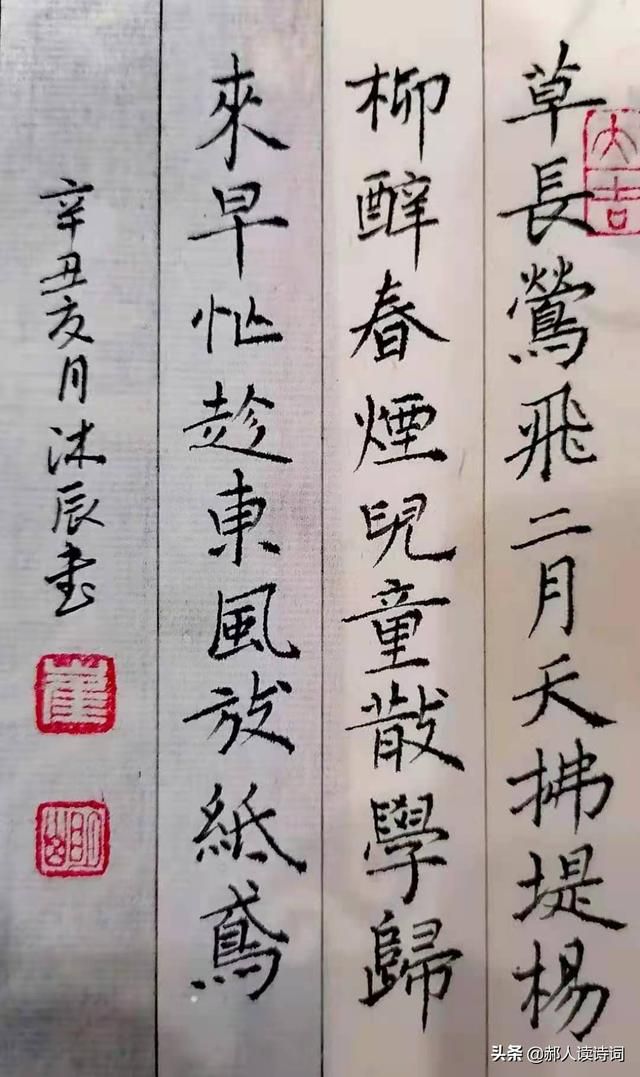 草長鶯飛二月天拂堤楊
柳醉春煙兒童散學歸
來早忙趁東風放紙鳶
辛丑亥月沐辰書
大吉
崔
头条 @郝人读诗词